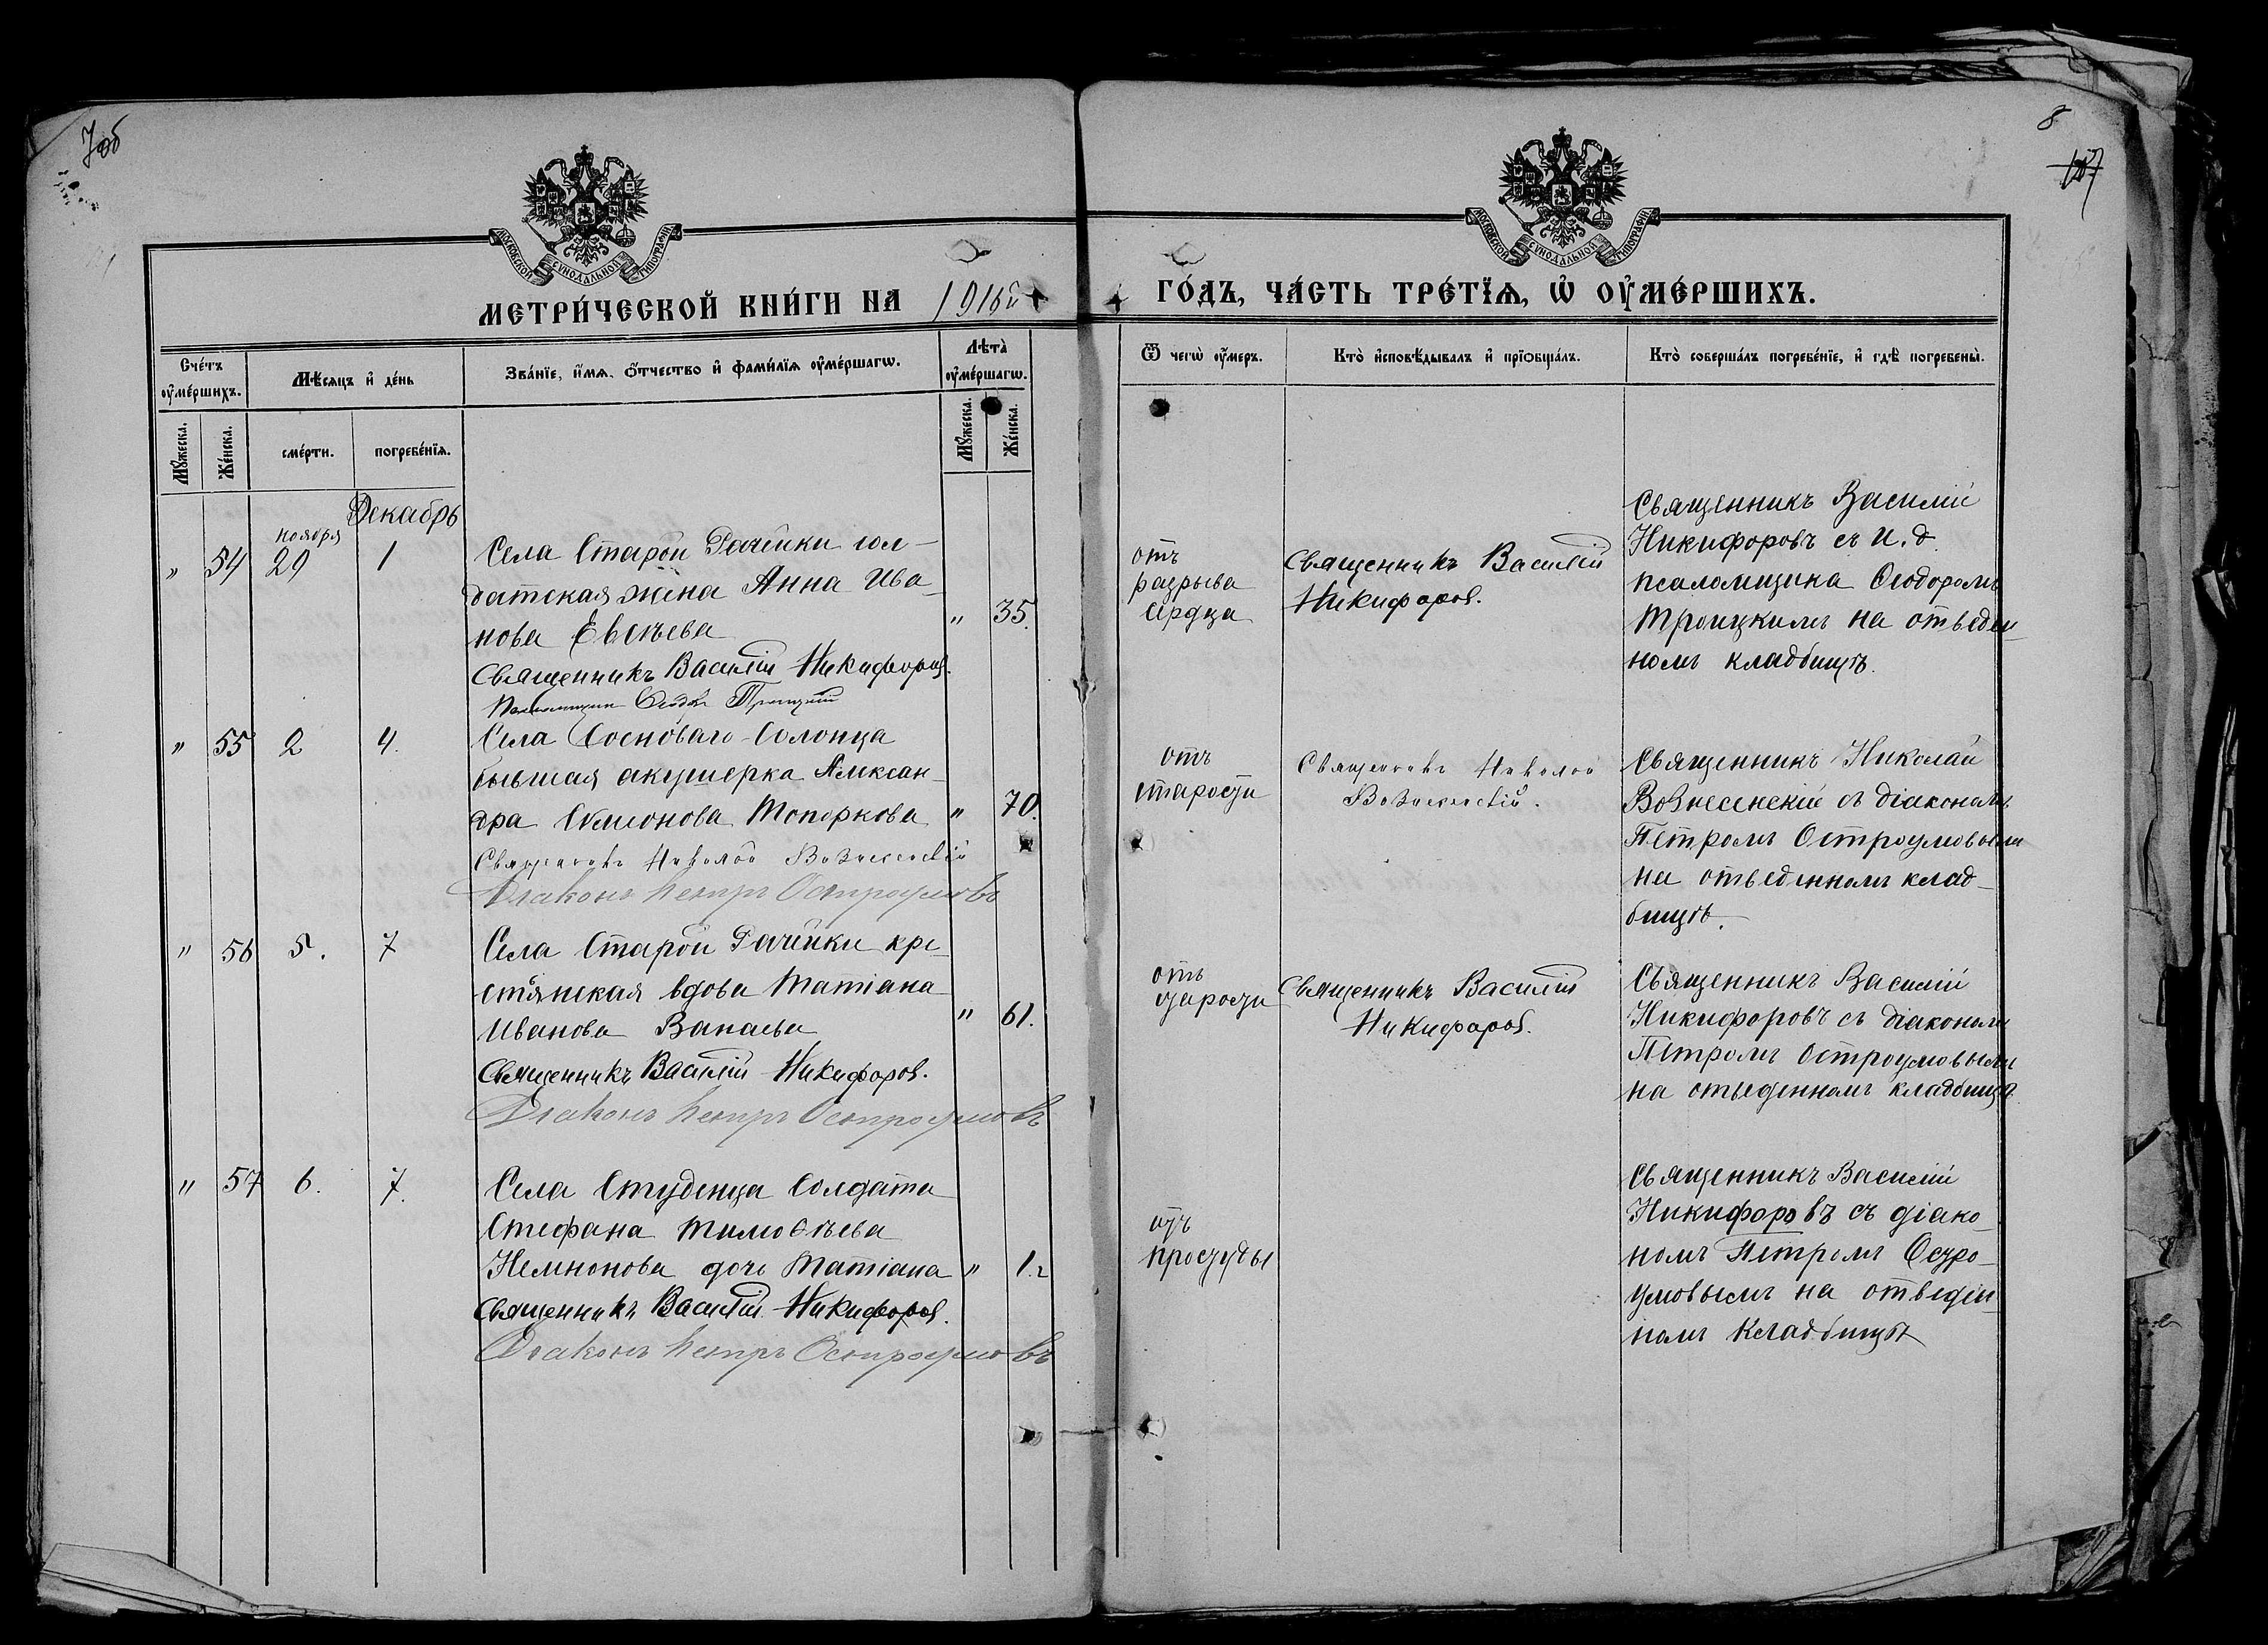 7об
8
МОСКОВСКОЙ СѴНОДАЛЬНОЙ ТИПОГРАФІИ
МОСКОВСКОЙ СѴНОДАЛЬНОЙ ТИПОГРАФІИ
МЕТРИ́ЧЕСКОЙ КНИ́ГИ НА 1916й
ГО́ДЪ, ЧА́СТЬ ТРЕ́ТІѦ, Ѡ҆ ОУ҆МЕ́РШИХЪ.
Сче́тъ оу҆ме́ршихъ.
Мѣсяцъ и҆ де́нь
Зва́нїе, и҆́мя, ѻ҆́тчество и҆ фами́лїя оу҆ме́ршагѡ.
Лѣта̀ оу҆ме́ршагѡ.
Ѿ чегѡ̀ оу҆́меръ.
Кто̀ и҆сповѣ́дывалъ и҆ прїѡбща́лъ.
Кто̀ соверша́лъ погребе́нїе, и҆ гдѣ̀ погребены̀.
Мꙋ́жеска.
Же́нска.
сме́рти.
погребе́нїя.
Мꙋ́жеска.
Же́нска.
Декабрь
ноября
" 54 29 1
Села Старой Рачейки сол-
датская жена Анна Ива-
нова Евсѣева " 35.
Священникъ Василій Никифоров.
Псаломщик Ѳеодор Троицкій
отъ
разрыва
сердца
Священникъ Василій
Никифоров.
Священникъ Василій
Никифоровъ съ и. д.
псаломщика Ѳеодоромъ
Троицкимъ на отведен
номъ кладбищѣ.
" 55 2 4.
Села Сосноваго-Солонца
бывшая акушерка Алексан-
дра Симеонова Топоркова " 70.
Священникъ Николай Вознесенскій
Діаконъ Петръ Остроумовъ
отъ
старости
Священникъ Николай
Вознесенскій.
Священникъ Николай
Вознесенскій съ діакономъ
Петромъ Остроумовымъ
на отведенномъ клад-
бищѣ.
" 56 5. 7
Села Старой Рачейки кре-
стьянская вдова Татіана
Иванова Ванаева " 61.
Священникъ Василій Никифоров.
Діаконъ Петръ Остроумовъ
отъ
старости
Священникъ Василій
Никифоров.
Священникъ Василій
Никифоровъ съ діакономъ
Петромъ Остроумовымъ
на отведенномъ кладбищѣ
" 57 6. 7.
Села Студенца Солдата
Стефана Тимоѳѣева
Немнонова дочь Татіана " 1.г
Священникъ Василій Никифоров.
Діаконъ Петръ Остроумовъ
отъ
простуды
Священникъ Василій
Никифоровъ съ діако-
номъ Петромъ Остро-
умовымъ на отведен-
номъ кладбищѣ